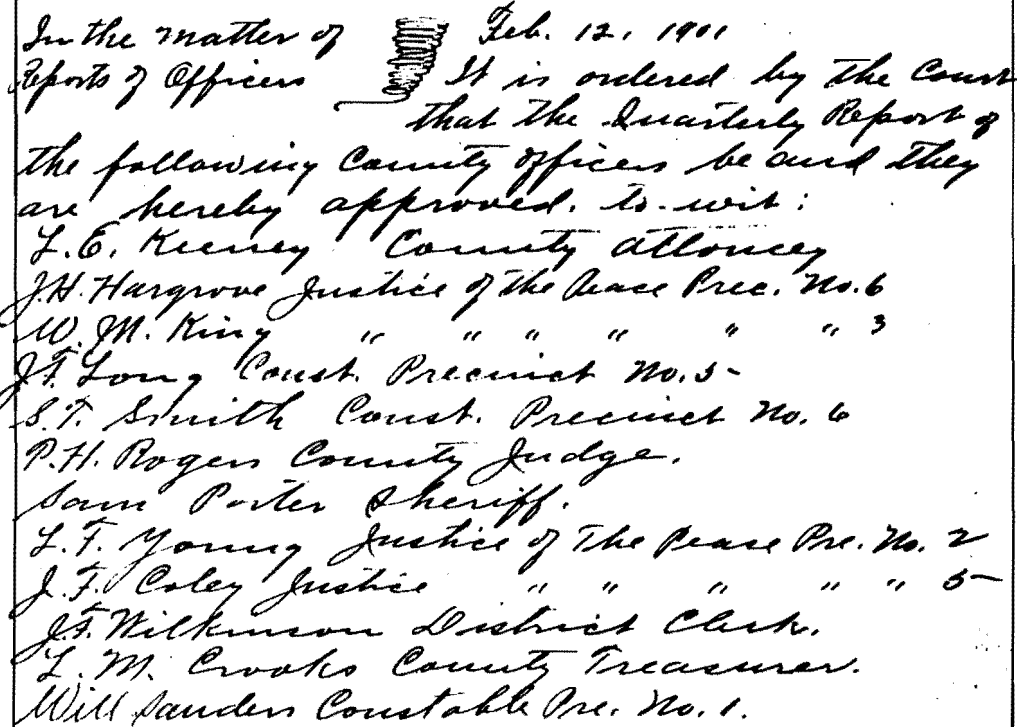 In the matter of Feb. 12, 1901
Reports of Officers It is ordered by the Court
that the Quarterly Report of
the following County officers be and they
are hereby approved. to-wit:
L.E. Keeney County Attorney
J.H. Hargrove Justice of the Pease Prec. No. 6
W.M. King " " " " " " 3
J.F. Long Const. Precinct No. 5
S.T. Smith Const. Precinct No. 6
P.H. Rogers County Judge.
Sam Porter Sheriff.
L.F. Young Justice of The Pease Pre. No. 2
J.F. Coley Justice " " " " " 5
J.F. Wilkinson District Clerk.
L.M. Crooks County Treasurer.
Will Sanders Constable Pre. No. 1.